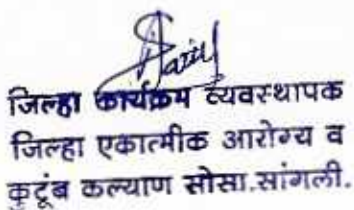 जिल्हा कार्यक्रम व्यवस्थापक
जिल्हा एकात्मीक आरोग्य व
कुटूंब कल्याण सोसा.सांगली.